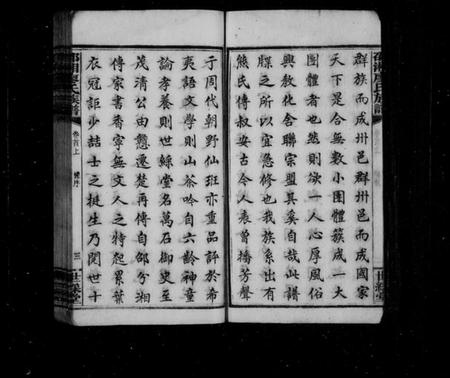 群族而成州邑群州邑而成國家
天下是合無數小團體簇成一大
團體者也然則欲一人心厚風俗
興敎化舍聯宗盟其奚自哉此譜
牒之所以宜急修也我族系出有
熊氏傳叔安古今人表曾播芳聲
于周代朝野仙班亦重品評於希
夷語文學則山茶吟自六齡神童
論孝養則世綵堂名萬石御史至
茂清公由懸遷楚再傳自邵分湘
傳家書香寧無文人之特起累葉
衣冠詎少喆士之挺生乃閱世十
卷首上
三